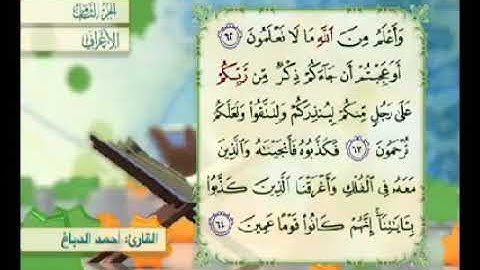 الجزء الثامن
الأعراف
وَأَعْلَمُ مِنَ ٱللَّهِ مَا لَا تَعْلَمُونَ ٦٢
أَوَعَجِبْتُمْ أَن جَآءَكُمْ ذِكْرٌ مِّن رَّبِّكُمْ
عَلَىٰ رَجُلٍ مِّنكُمْ لِيُنذِرَكُمْ وَلِتَتَّقُوا۟ وَلَعَلَّكُمْ
تُرْحَمُونَ ٦٣ فَكَذَّبُوهُ فَأَنجَيْنَٰهُ وَٱلَّذِينَ
مَعَهُۥ فِى ٱلْفُلْكِ وَأَغْرَقْنَا ٱلَّذِينَ كَذَّبُوا۟
بِـَٔايَٰتِنَآ ۚ إِنَّهُمْ كَانُوا۟ قَوْمًا عَمِينَ ٦٤
القارئ: أحمد الدباغ